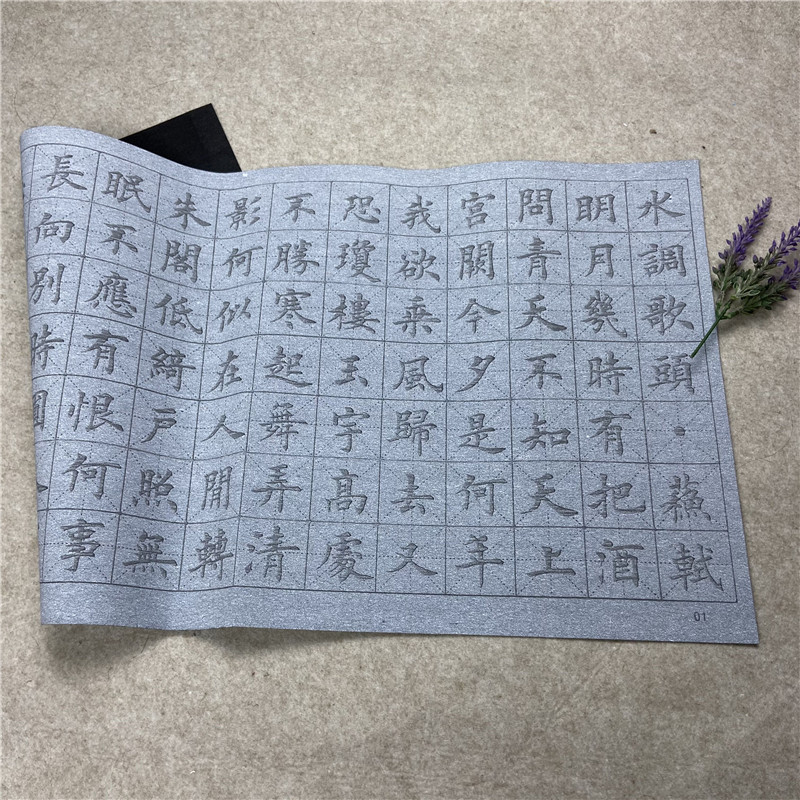 水調歌頭·蘇軾
明月幾時有把酒
問青天不知天上
宮闕今夕是何年
我欲乗風歸去又
恐瓊樓玉宇高處
不勝寒起舞弄清
影何似在人間轉
朱閣低綺戶照無
眠不應有恨何事
長向別時圓
01